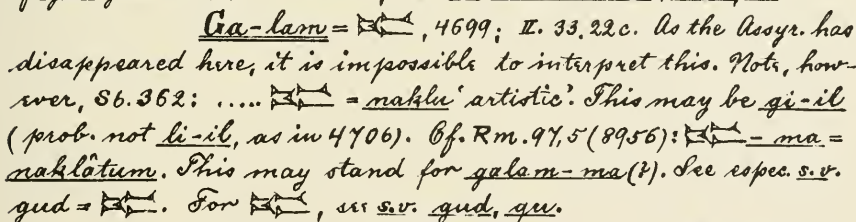 Ga-lam = , 4699; II. 33, 22c. As the Assyr. has
disappeared here, it is impossible to interpret this. Note, how-
ever, Sb. 362: ..... = naklu 'artistic'. This may be gi-il
(prob. not li-il, as in 4706). Cf. Rm. 97, 5 (8956): - ma =
naklâtum. This may stand for galam-ma (?). See espec. s.v.
gud = . For , see s.v. gud, qu.